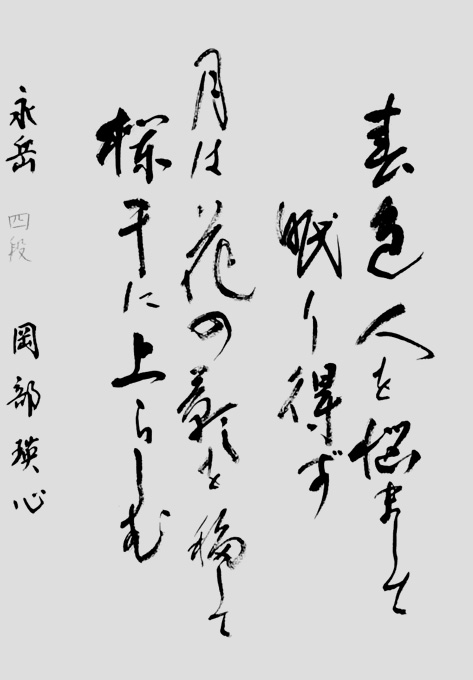 春色人を悩まして
眠り得ず
月は花の影を移して
欄干に上らしむ
永岳 四段 岡部瑛心